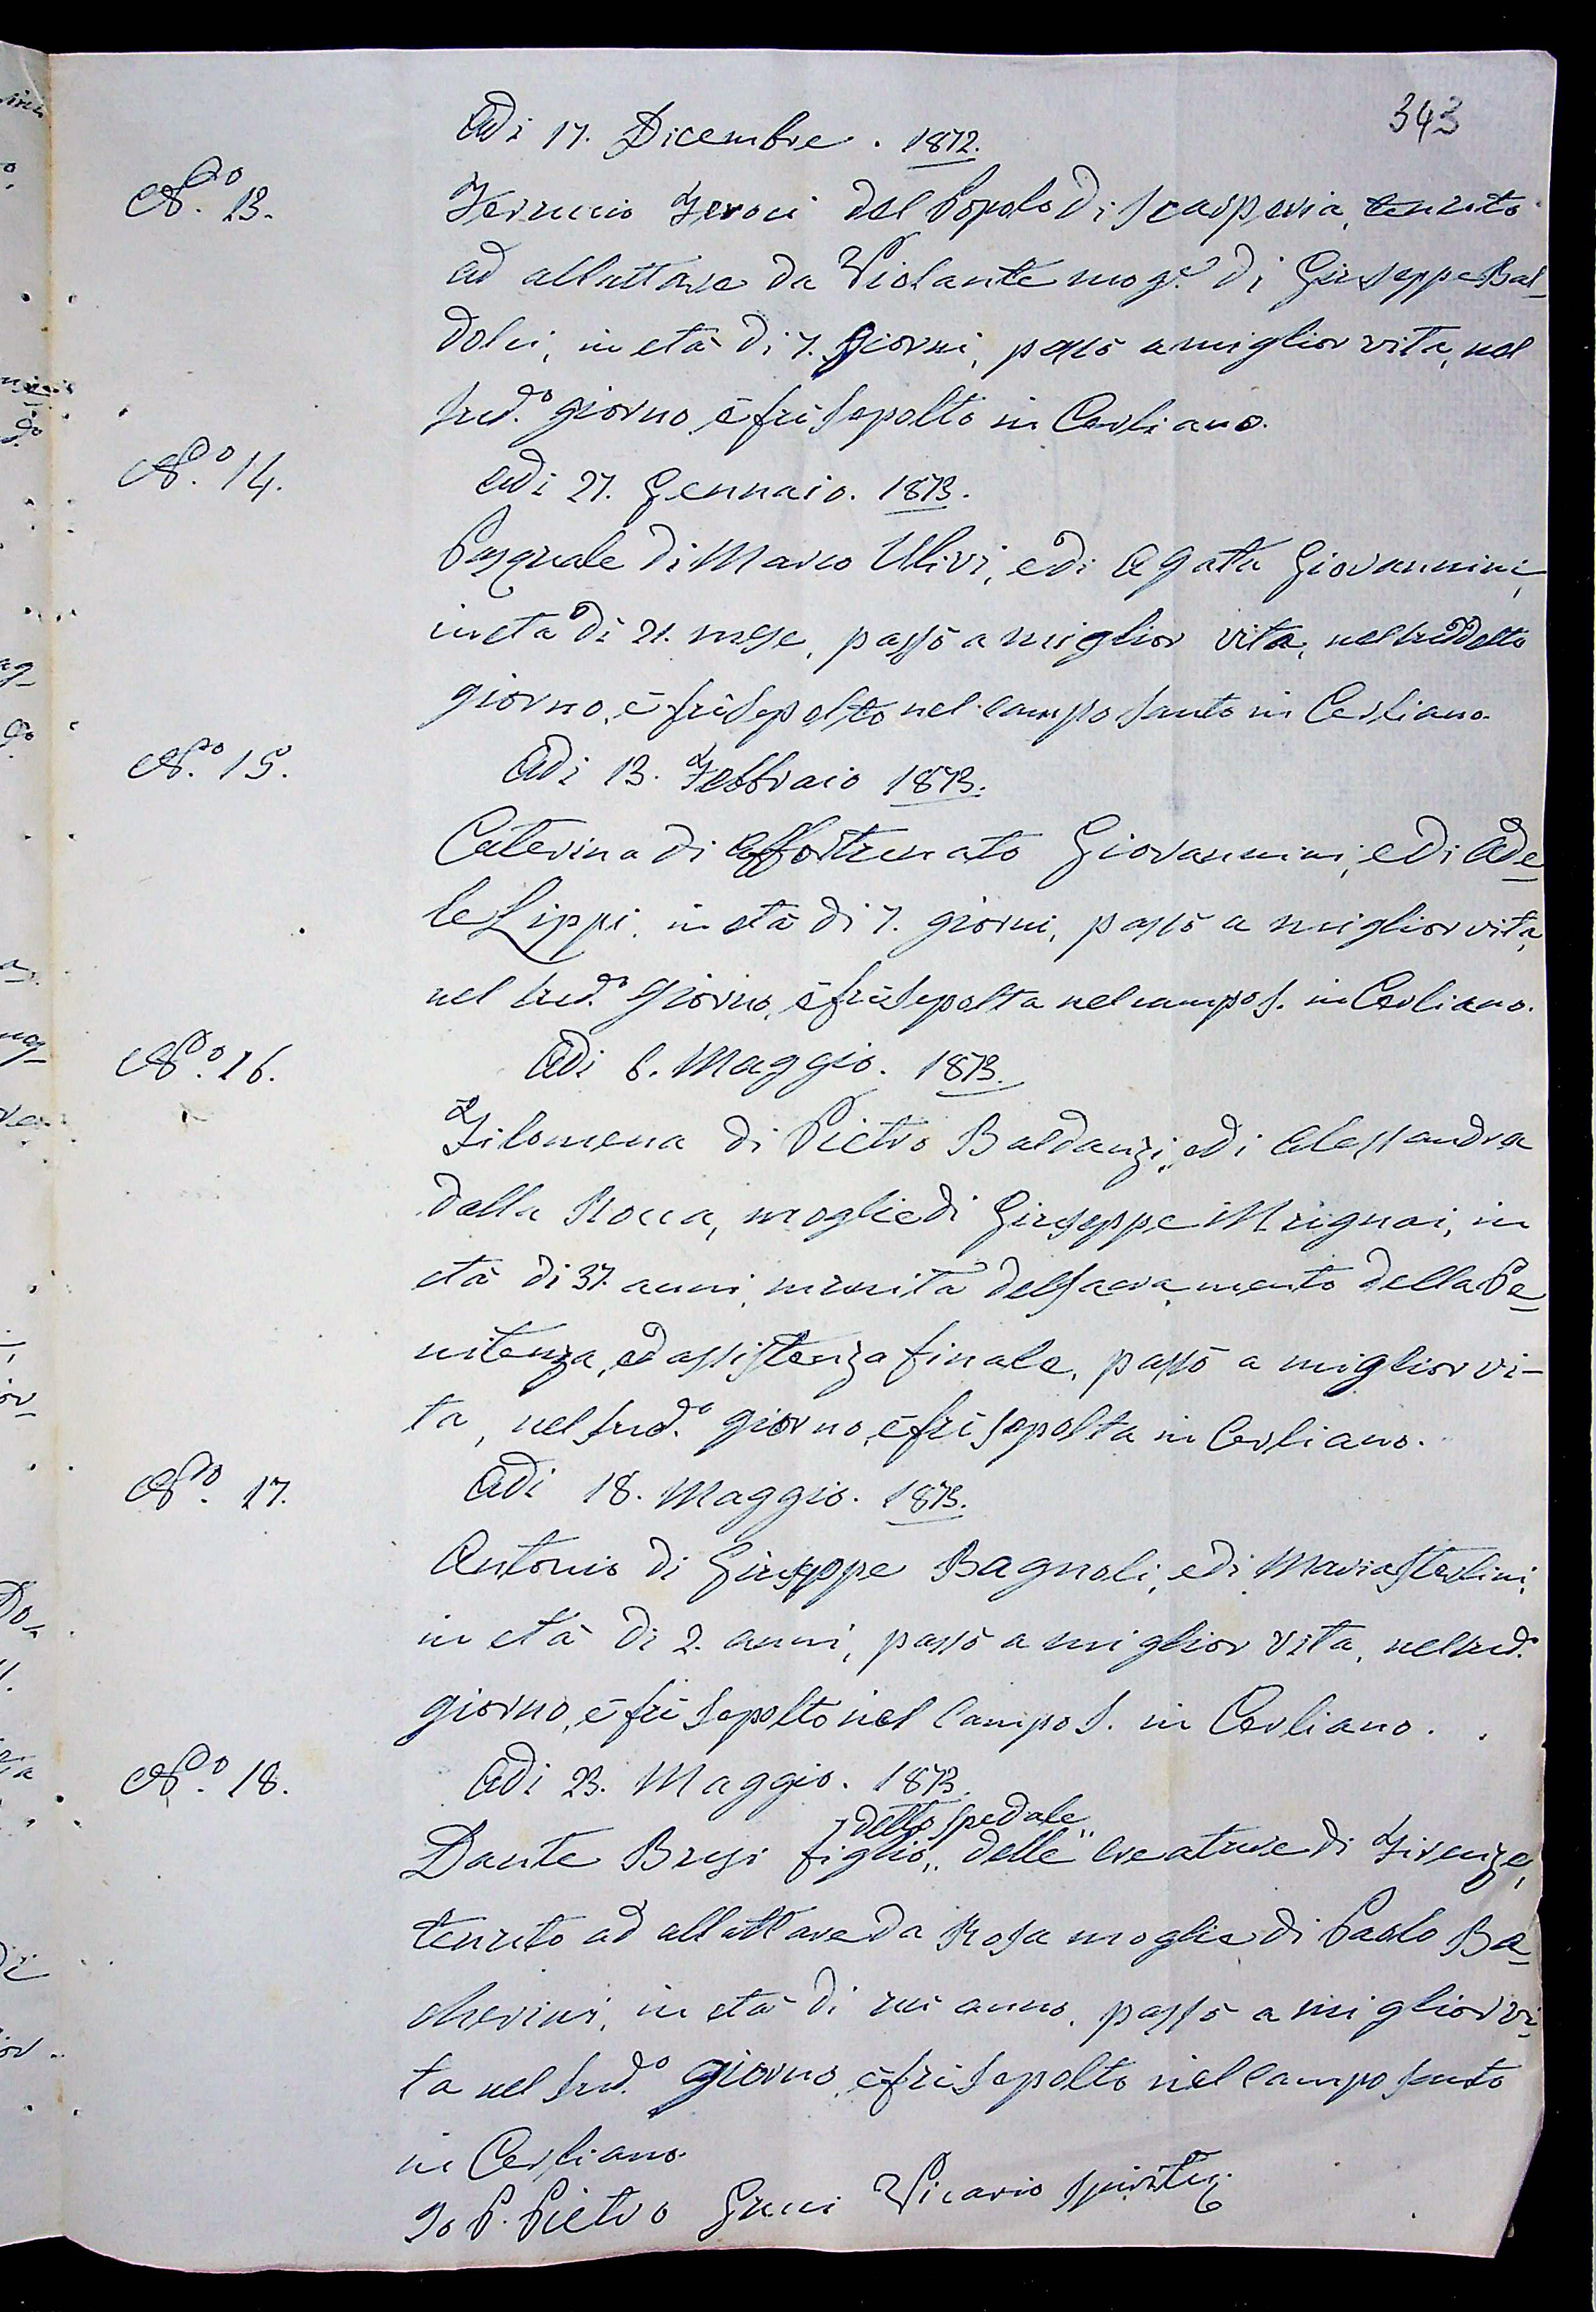 343
Adi 17. Dicembre. 1872.
N.º 13. Ferruccio Feroci del Popolo di Scarperia, tenuto
ad allattare da Violante mog.e di Giuseppe Bal-
dolci, in età di 7. giorni, passò a miglior vita, nel
sud.º giorno, e fù sepolto in Cerliano.
N.º 14. Adi 27. Gennaio. 1873.
Pasquale di Marco Ulivi, e di Agata Giovannini,
in eta di 21. mese, passò a miglior vita, nel suddetto
giorno, e fù sepolto nel campo santo in Cerliano.
N.º 15. Adi 13. Febbraio 1873.
Caterina di Affortunato Giovannini, e di Ade-
le Lippi, in età di 7. giorni, passò a miglior vita,
nel sud.º giorno, e fù sepolta nel campo s. in Cerliano.
N.º 16. Adi 6. Maggio. 1873.
Filomena di Pietro Baldanzi, e di Alessandra
della Rocca, moglie di Giuseppe Mugnai, in
età di 37. anni, munita del sacramento della Pe-
nitenza, ed assistenza finale, passò a miglior vi-
ta, nel sud.º giorno, e fù sepolta in Cerliano.
N.º 17. Adi 18. Maggio. 1873.
Antonio di Giuseppe Bagnoli, e di Maria Sterlini,
in età di 2. anni, passò a miglior vita, nel sud.º
giorno, e fù sepolto nel Campo S. in Cerliano.
N.º 18. Adi 23. Maggio. 1873.
dello spedale
Dante Brusi figlio, delle creature di Firenze,
tenuto ad allattare da Rosa moglie di Paolo Ba-
cherini, in età di un anno, passò a miglior vi-
ta nel sud.º giorno, e fù sepolto nel campo santo
in Cerliano.
Io P. Pietro Gucci Vicario Spirit.e